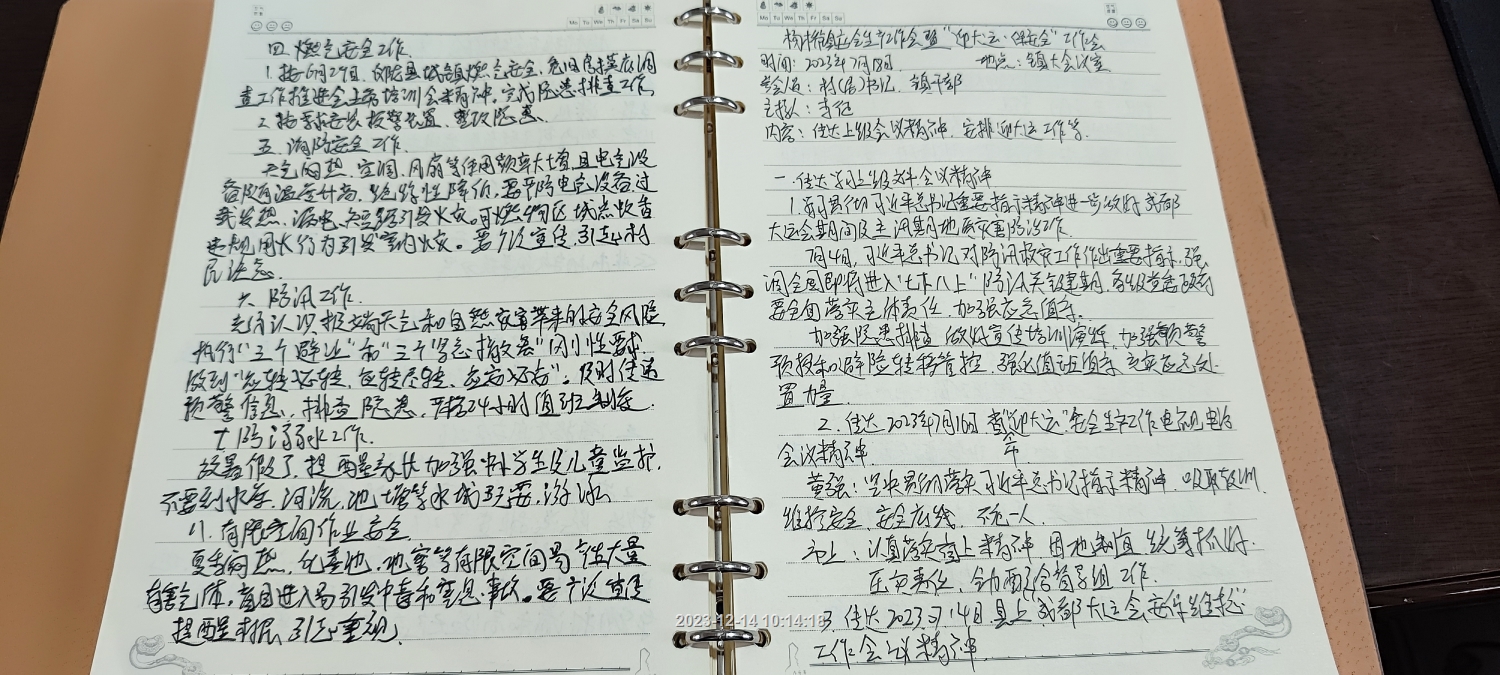 四、燃气安全工作.
1. 按6月29日, 县城镇燃气安全, 危旧房摸底调
查工作推进会上暨培训会来精神. 完成隐患排查工作.
2. 按要求安装报警装置, 整改隐患.
五、消防安全工作.
天气闷热, 空调、风扇等使用频率大增, 且电气设
备随温度升高, 绝缘性降低, 要严防电气设备过
载发热、漏电、短路引发火灾. 可燃物区域点收杳
违规用火行为引发室内火灾。要广泛宣传, 引起村
民注意.
六、防汛工作.
充分认识极端天气和自然灾害带来的安全风险.
执行“三个避让”和“三个紧急撤离”刚性要求.
做到“应转必转, 应转尽转, 应转必转”。及时传达
预警信息, 排查隐患, 严格24小时值班制度.
七、防溺水工作.
放暑假了, 提醒家长加强中小学生及儿童监护.
不要到水库、河流、池塘等水域玩耍、游泳.
八. 有限空间作业安全.
夏季闷热, 化粪池、地窖等有限空间易产生大量
有害气体, 盲目进入易引发中毒和窒息事故. 要广泛宣传
提醒, 引起重视.
镇安全生产工作会暨“迎大运·保安全”工作会
时间: 2023年7月18日. 地点: 镇大会议室
参会人员: 村(居)书记、镇干部
主持人: 李
内容: 传达上级会议精神. 安排迎大运工作等.
一. 传达学习上级文件、会议精神
1. 习近平总书记重要指示精神进一步做好成都
大运会期间及主汛期地质灾害防治工作.
7月4日, 习近平总书记对防汛救灾工作作出重要指示, 强
调全国即将进入“七下八上”防汛关键期, 各级党委政府
要全面落实主体责任, 加强应急值守.
加强隐患排查, 做好宣传培训演练, 加强预警
预报和避险转移管控, 强化值班值守, 充实应急处
置力量.
2. 传达2023年7月16日省“迎大运”安全生产工作电视电话
会议精神.
黄强: 坚决贯彻落实习近平总书记指示精神. 吸取教训.
维护安全. 安全底线. 不
市上: 认真落实省上精神, 因地制宜, 统筹抓好.
压实责任, 全力配合督导组工作.
3. 传达2023.7.14日县上成都大运会安保维稳
工作会议精神.
2023-12-14 10:14:18